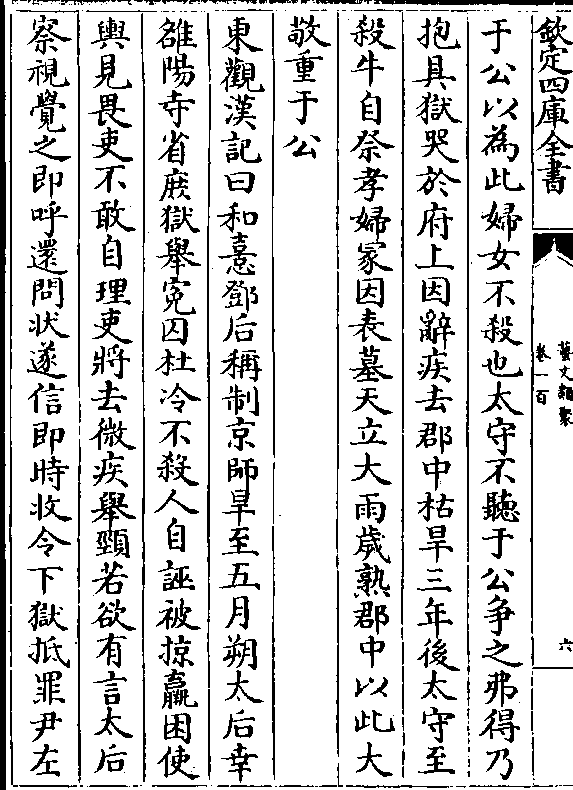 欽定四庫全書
藝文類聚
卷一百
六
于公以為此婦女不殺也太守不聽于公爭之弗得乃
抱具獄哭於府上因辭疾去郡中枯旱三年後太守至
殺牛自祭孝婦冢因表墓天立大雨歲熟郡中以此大
敬重于公
東觀漢記曰和憙鄧后稱制京師旱至五月朔太后幸
雒陽寺省庭獄舉冤囚杜冷不殺人自誣被掠羸困使
輿見畏吏不敢自理吏將去微疾舉頸若欲有言太后
察視覺之即呼還問狀遂信即時收令下獄抵罪尹左